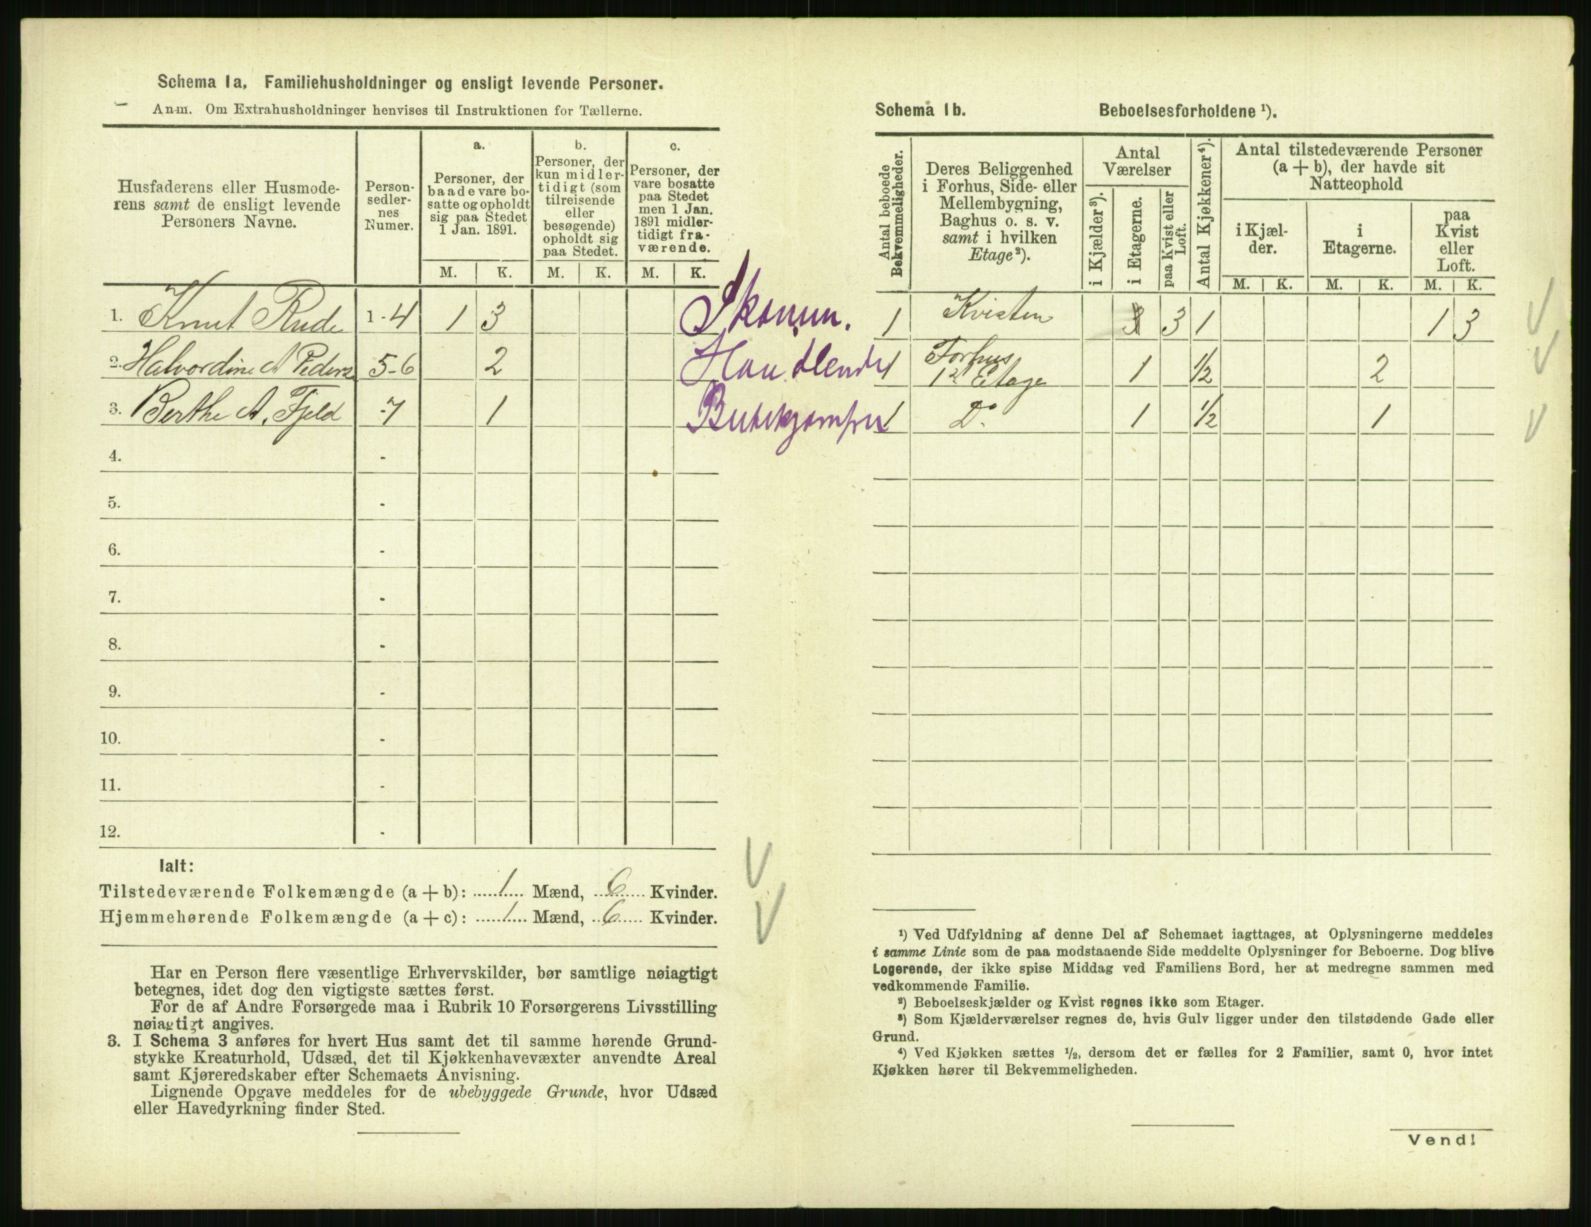 Schema 1a. Familiehusholdninger og ensligt levende Personer.
Anm. Om Extrahusholdninger henvises til Instruktionen for Tællerne.
Husfaderens eller Husmode-
rens samt de ensligt levende
Personers Navne.
Person-
sedler-
nes
Numer.
a.
Personer, der
baade vare bo-
satte og opholdt
sig paa Stedet
1 Jan. 1891.
b.
Personer, der
kun midler-
tidigt (som
tilreisende
eller
besøgende)
opholdt sig
paa Stedet.
c.
Personer, der
vare bosatte
paa Stedet
men 1 Jan.
1891 midler-
tidigt fra-
værende.
M. K. M. K. M. K.
1. Knut Rude 1-4 1 3
2. Halvordine A Peders 5-6 2 Handlende
3. Berthe A. Fjeld -7 1
4. -
5. -
6. -
7. -
8. -
9. -
10. -
11. -
12. -
Ialt:
Tilstedeværende Folkemængde (a + b): 1 Mænd, 6 Kvinder.
Hjemmehørende Folkemængde (a + c): 1 Mænd, 6 Kvinder.
Har en Person flere væsentlige Erhvervskilder, bør samtlige nøiagtigt
betegnes, idet dog den vigtigste sættes først.
For de af Andre Forsørgede maa i Rubrik 10 Forsørgerens Livsstilling
nøiagtigt angives.
3. I Schema 3 anføres for hvert Hus samt det til samme hørende Grund-
stykke Kreaturhold, Udsæd, det til Kjøkkenhavevæxter anvendte Areal
samt Kjøreredskaber efter Schemaets Anvisning.
Lignende Opgave meddeles for de ubebyggede Grunde, hvor Udsæd
eller Havedyrkning finder Sted.
Schema 1b. Beboelsesforholdene ¹).
Antal beboede
Bekvemmeligheder.
Deres Beliggenhed
i Forhus, Side- eller
Mellembygning,
Baghus o. s. v.
samt i hvilken
Etage²).
Antal
Værelser
i Kjælder³).
i Etagerne.
paa Kvist eller
Loft.
Antal Kjøkkener⁴).
Antal tilstedeværende Personer
(a + b), der havde sit
Natteophold
i Kjæl-
der.
i
Etagerne.
paa
Kvist
eller
Loft.
M. K. M. K. M. K.
1 Kvisten 3 3 1 1 3
1 Forhus
1ste Etage 1 ½ 2
1 Do. 1 ½ 1
¹) Ved Udfyldning af denne Del af Schemaet iagttages, at Oplysningerne meddeles
i samme Linie som de paa modstaaende Side meddelte Oplysninger for Beboerne. Dog blive
Logerende, der ikke spise Middag ved Familiens Bord, her at medregne sammen med
vedkommende Familie.
²) Beboelseskjælder og Kvist regnes ikke som Etager.
³) Som Kjælderværelser regnes de, hvis Gulv ligger under den tilstødende Gade eller
Grund.
⁴) Ved Kjøkken sættes ½, dersom det er fælles for 2 Familier, samt 0, hvor intet
Kjøkken hører til Bekvemmeligheden.
Vend!